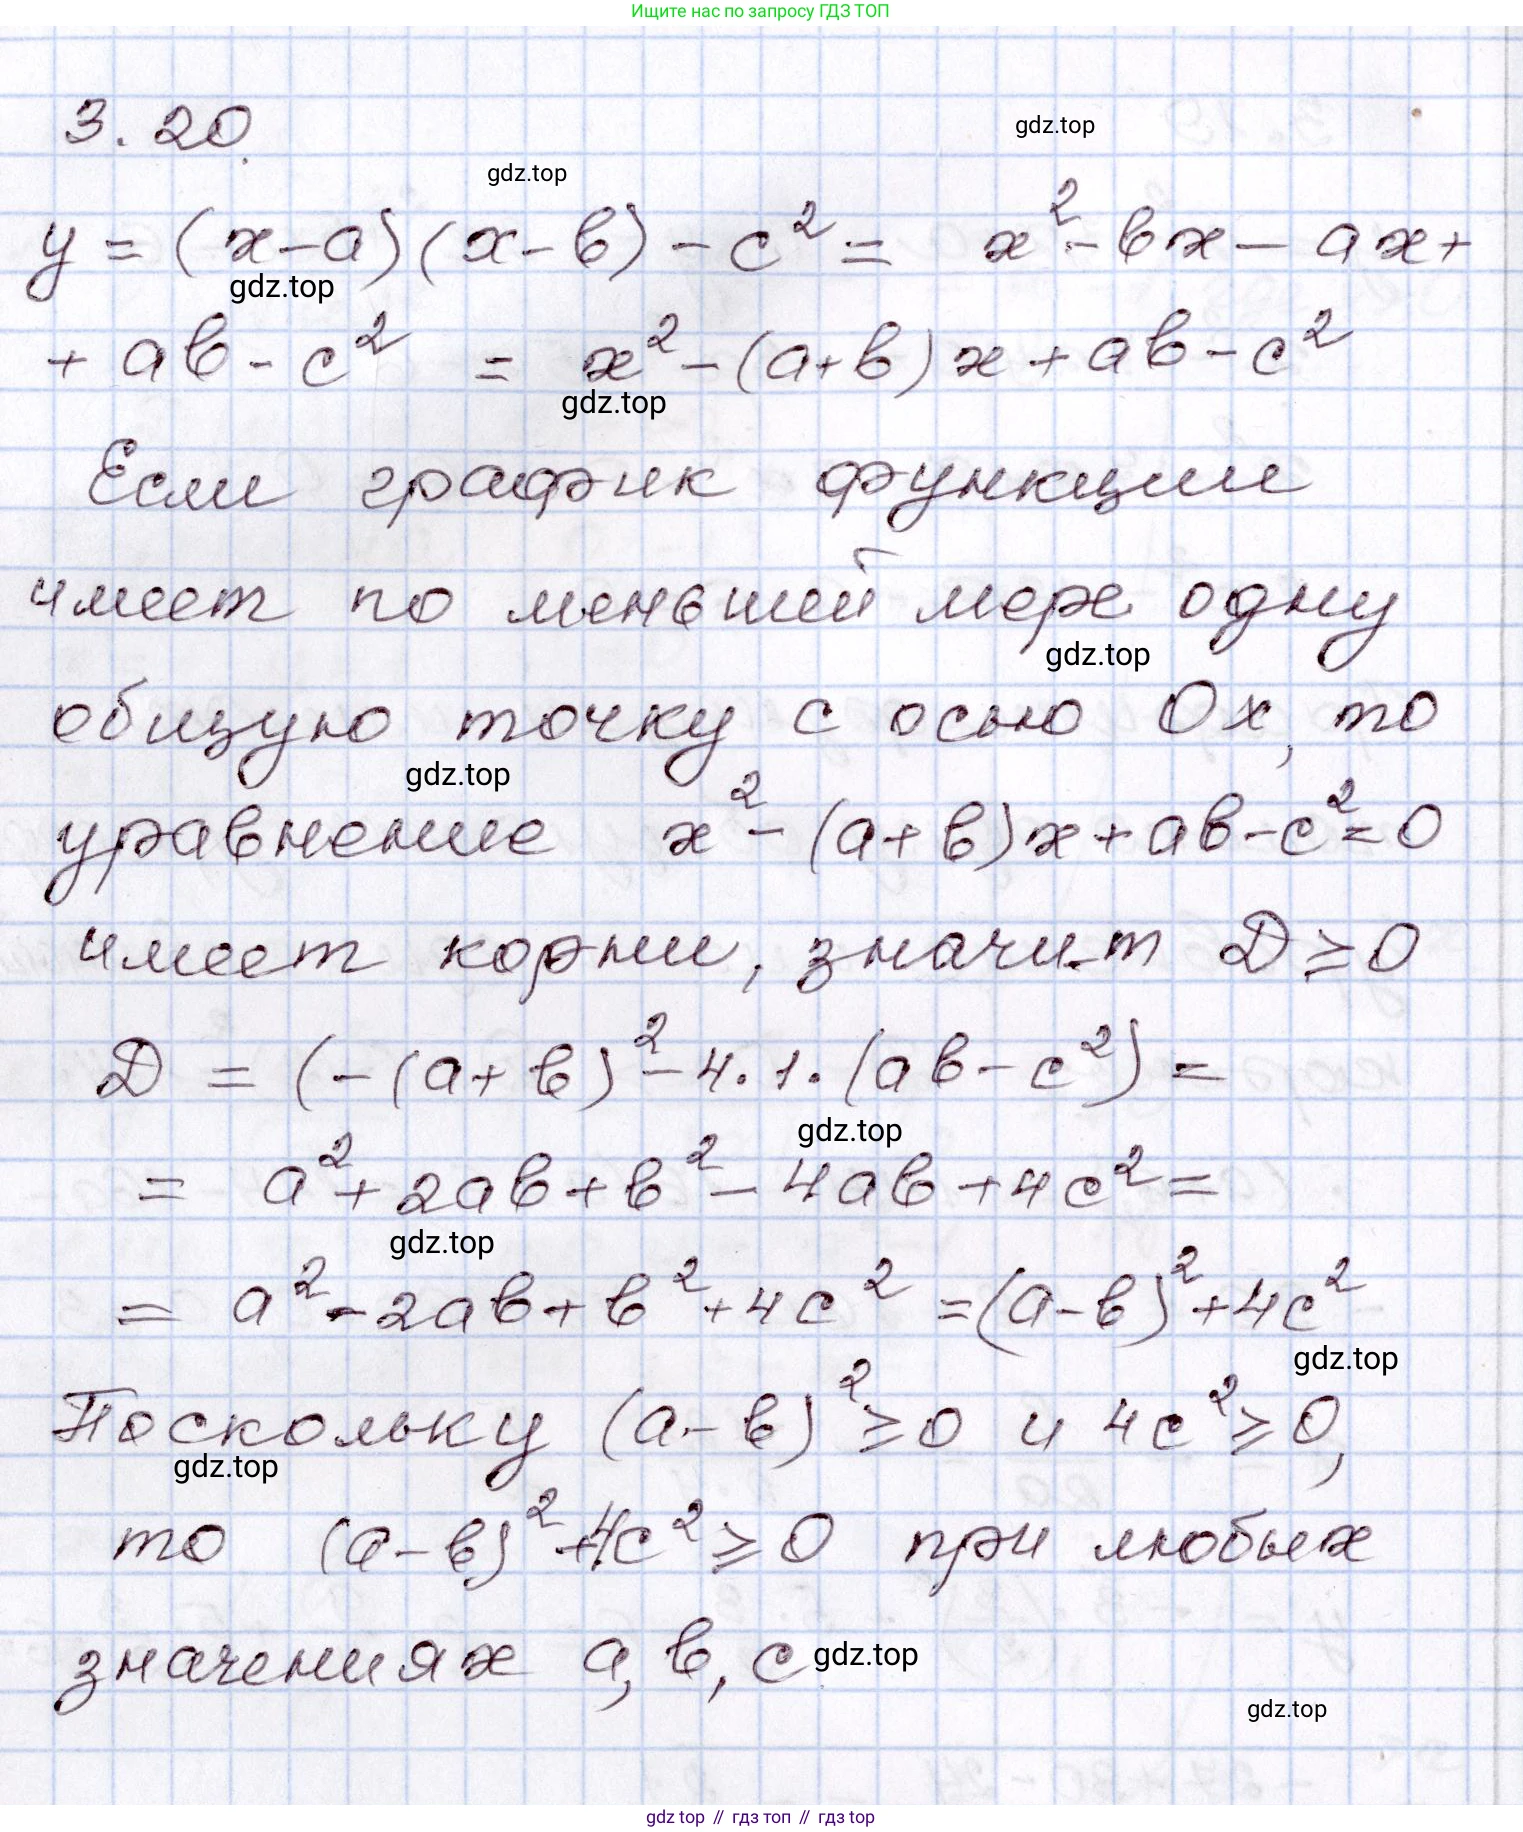 Ищите нас по запросу ГДЗ ТОП
3.20.
gdz.top
gdz.top
y = (x-a)(x-b)-c² = x²-bx-ax+
gdz.top
+ab-c² = x²-(a+b)x+ab-c²
gdz.top
Если график функции
имеет по меньшей мере одну
gdz.top
общую точку с осью Ох, то
gdz.top
уравнение x²-(a+b)x+ab-c²=0
имеет корни, значит D≥0
D = (-(a+b)²-4·1·(ab-c²) =
gdz.top
= a²+2ab+b²-4ab+4c² =
gdz.top
= a²-2ab+b²+4c² =(a-b)²+4c²
gdz.top
Поскольку (a-b)²≥0 и 4c²≥0,
gdz.top
то (a-b)²+4c²≥0 при любых
значениях a, b, c
gdz.top
gdz.top
gdz.top // гдз топ // гдз top